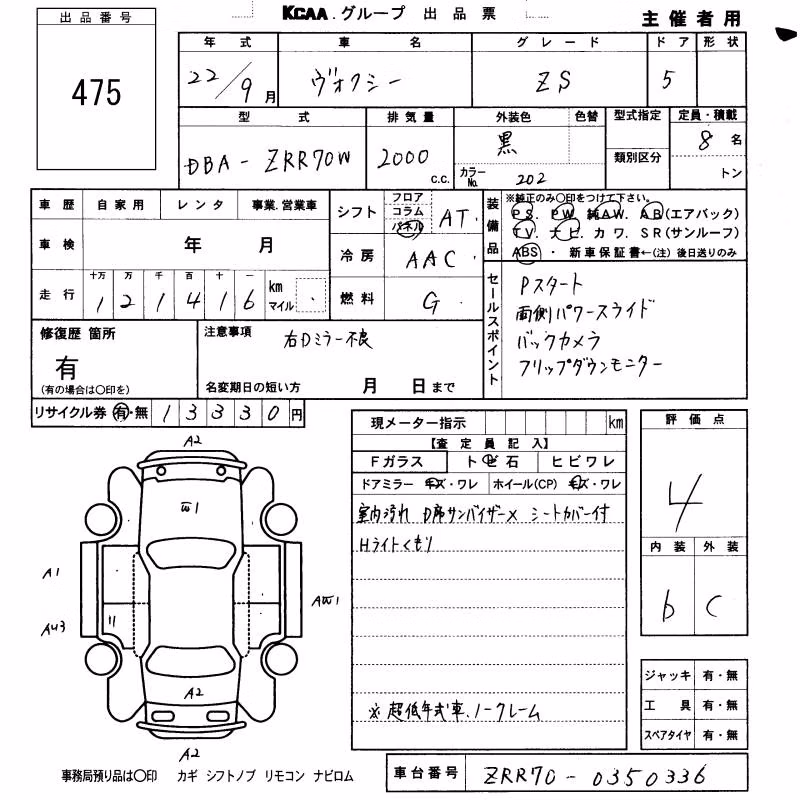 KCAA.グループ 出品票
主催者用
出品番号
475
年式 車名 グレード ドア 形状
22/9月 ヴォクシー ZS 5
型式 排気量 外装色 色替 型式指定 定員・積載
DBA-ZRR70W 2000 c.c. 黒 カラーNo. 202 類別区分 8名
トン
車歴 自家用 レンタ 事業.営業車
シフト フロア コラム パネル AT.
装備品 ※純正のみ○印をつけて下さい。
PS. PW. 純AW. AB(エアバック)
TV. ナビ. カワ. SR(サンルーフ)
ABS・ 新車保証書←(注)後日送りのみ
車検 年 月
冷房 AAC.
走行 十万 万 千 百 十 一 km マイル
1 2 1 4 1 6
燃料 G.
セールスポイント
Pスタート
両側パワースライド
バックカメラ
フリップダウンモニター
修復歴 箇所
有
(有の場合は○印を)
注意事項 右Dミラー不良
名変期日の短い方 月 日まで
リサイクル券 有・無 13330円
現メーター指示 km
【査定員記入】
Fガラス トビ石 ヒビワレ
ドアミラー キズ・ワレ ホイール(CP) キズ・ワレ
室内汚れ D席サンバイザー× シートカバー付
Hライトくもり
※超低年式車.ノークレーム
評価点
4
内装 外装
b C
ジャッキ 有・無
工具 有・無
スペアタイヤ 有・無
A2
W1
A1
AU3
AW1
A2
A2
事務局預り品は○印 カギ シフトノブ リモコン ナビロム
車台番号 ZRR70-0350336